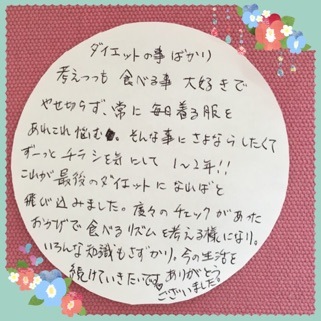 ダイエットの事ばかり
考えつつも 食べる事 大好きで
やせ切らず、常に 毎日着る服を
あれこれ悩む そんな事にさよならしたくて
ずーっとチラシを気にして 1〜2年!!
これが最後のダイエットになればと
飛び込みました。度々のチェックがあった
おかげで食べるリズムを考える様になり。
いろんな知識もさずかり。今の生活を
続けていきたいです。ありがとう
ございました。